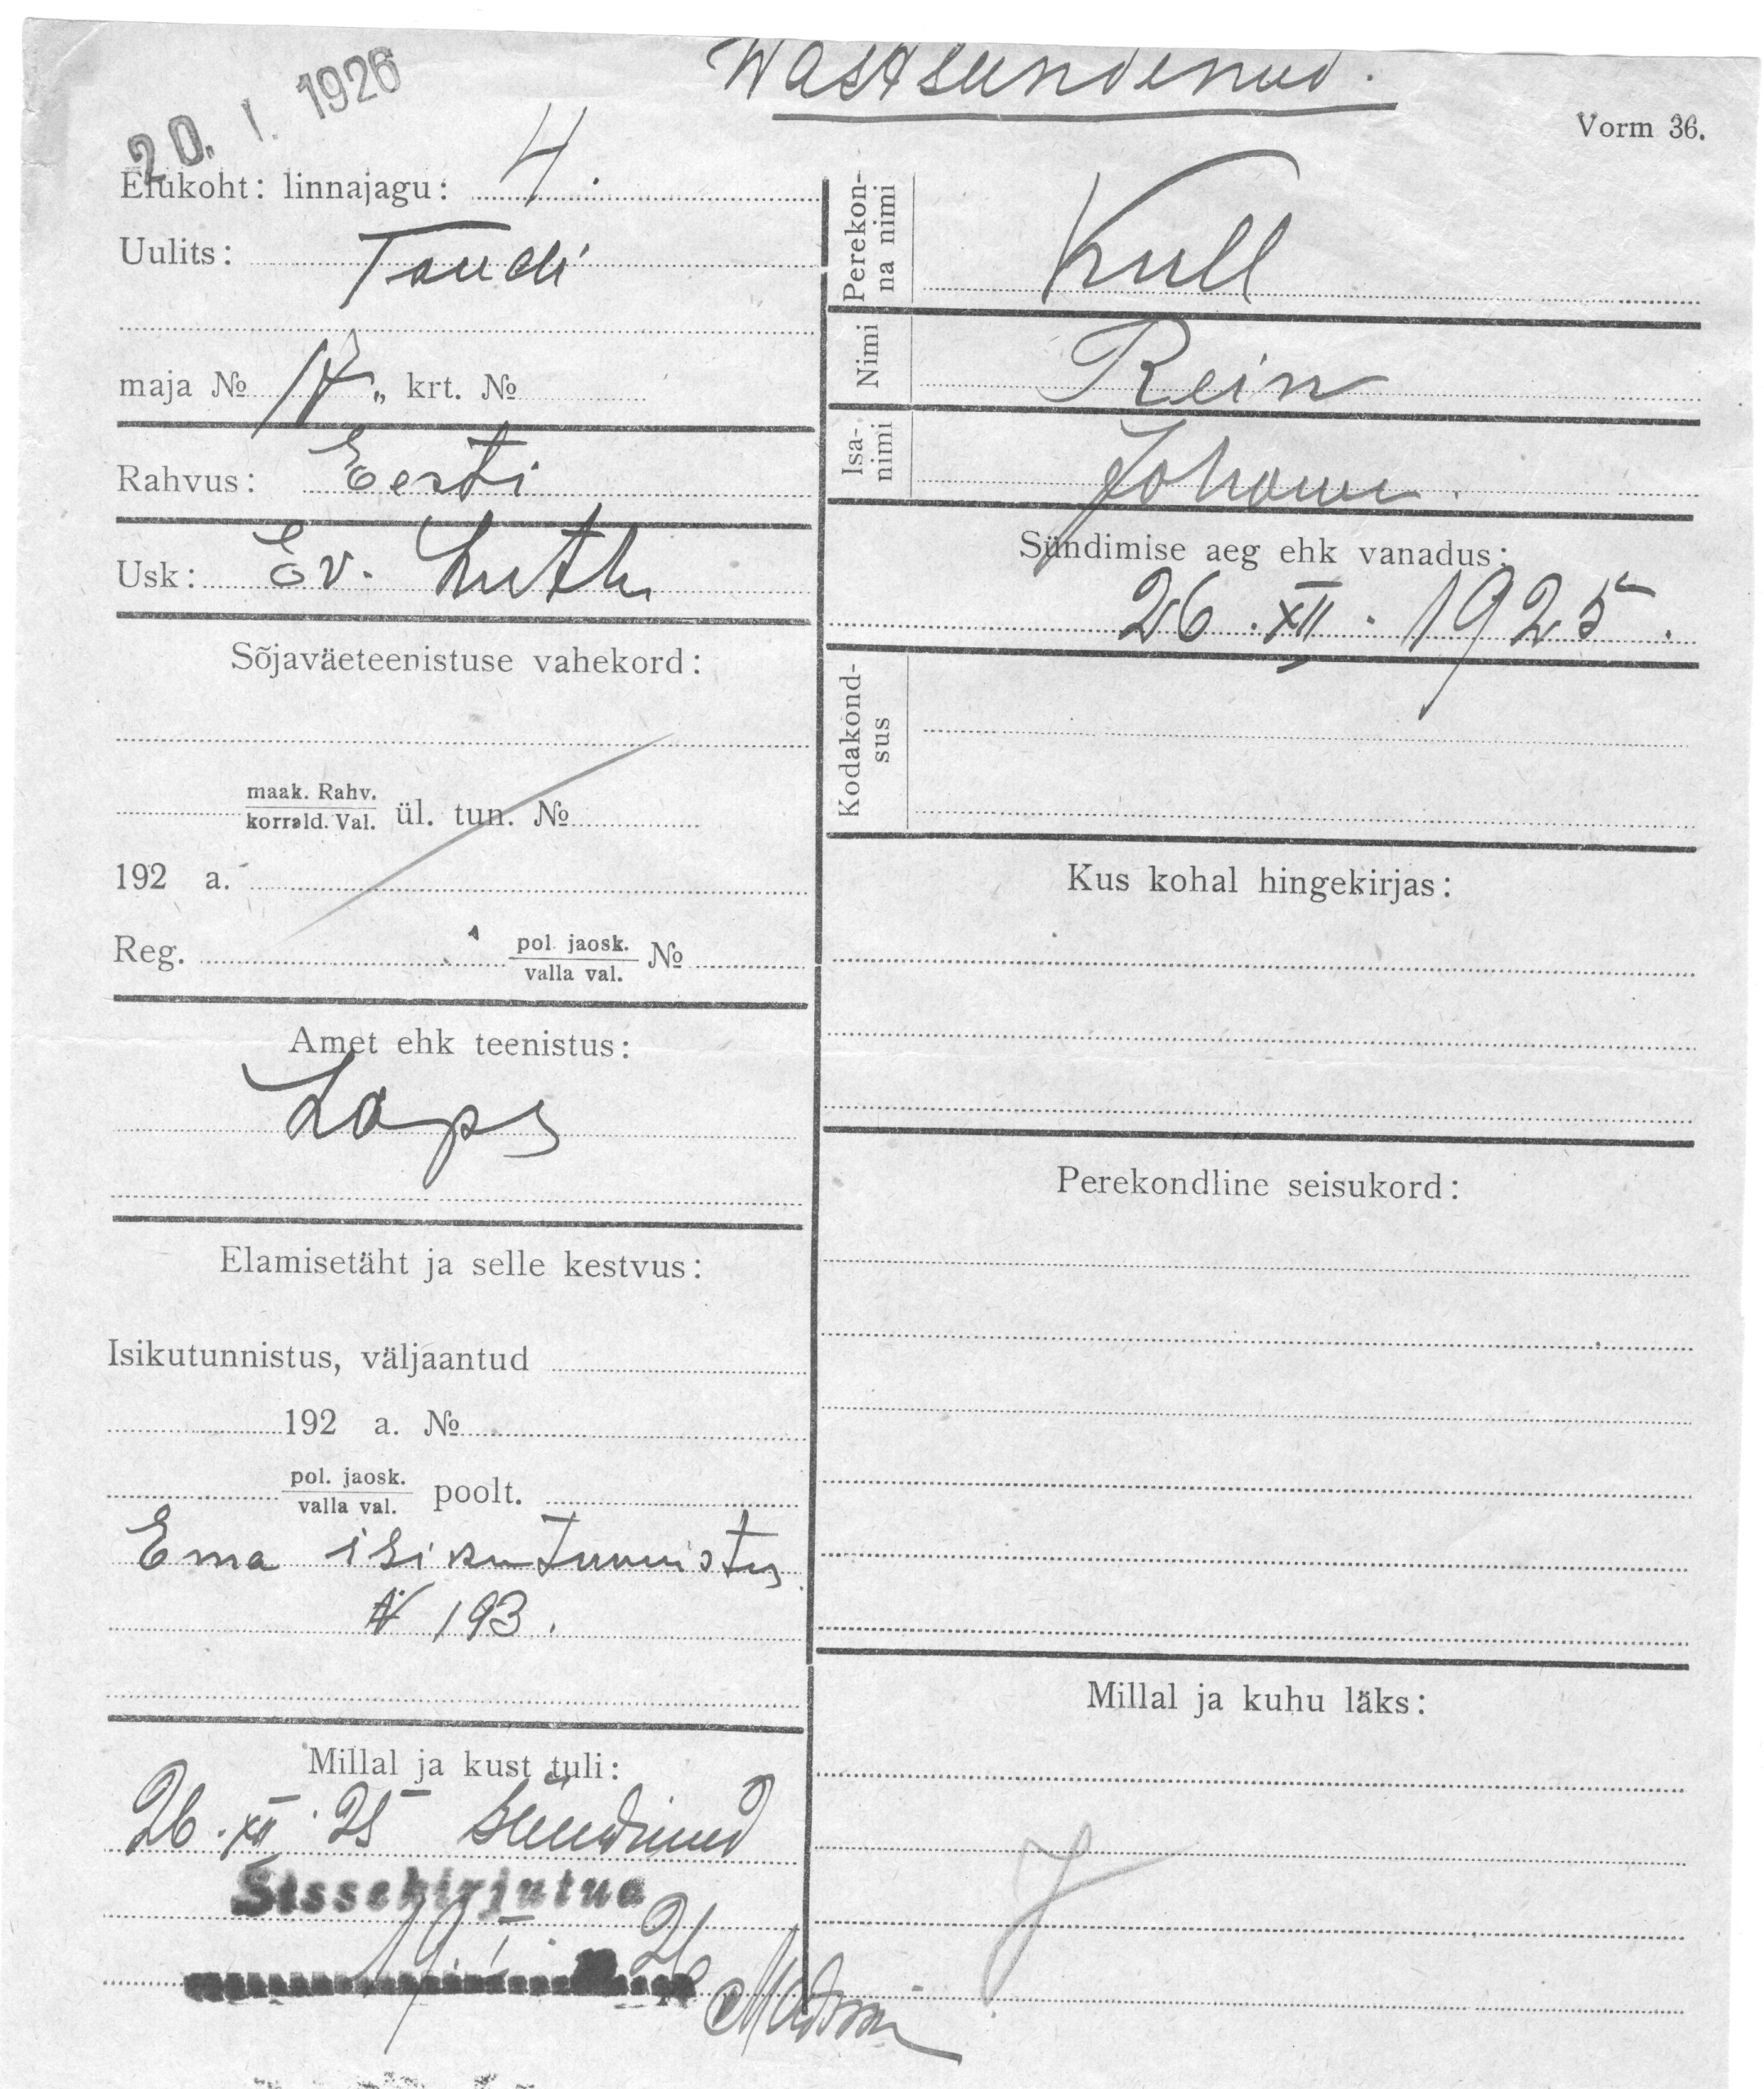 Wastsündinud.
20. I. 1926
Vorm 36.
Elukoht: linnajagu: 4.
Uulits: Taudi
maja № 17 „ krt. №
Rahvus: Eesti
Usk: Ev. Luth
Sõjaväeteenistuse vahekord:
maak. Rahv.
korrald. Val. ül. tun. №
192 a.
Reg. pol. jaosk.
valla val. №
Amet ehk teenistus:
Laps
Elamisetäht ja selle kestvus:
Isikutunnistus, väljaantud
192 a. №
pol. jaosk.
valla val. poolt.
Ema isikutunnistus
N 193.
Millal ja kust tuli:
26. XII. 25 sündinud
Sissekirjutud
19. I. 26
Perekon-
na nimi Kull
Nimi Rein
Isa-
nimi Johann.
Sündimise aeg ehk vanadus:
26. XII. 1925.
Kodakond-
sus
Kus kohal hingekirjas:
Perekondline seisukord:
Millal ja kuhu läks: